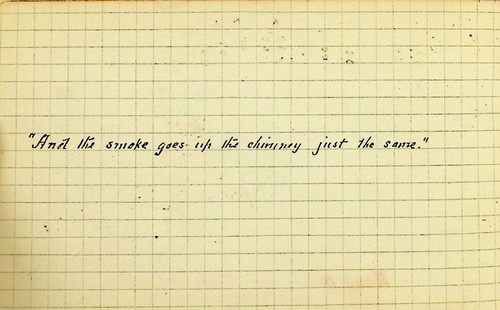 "And the smoke goes up the chimney just the same."